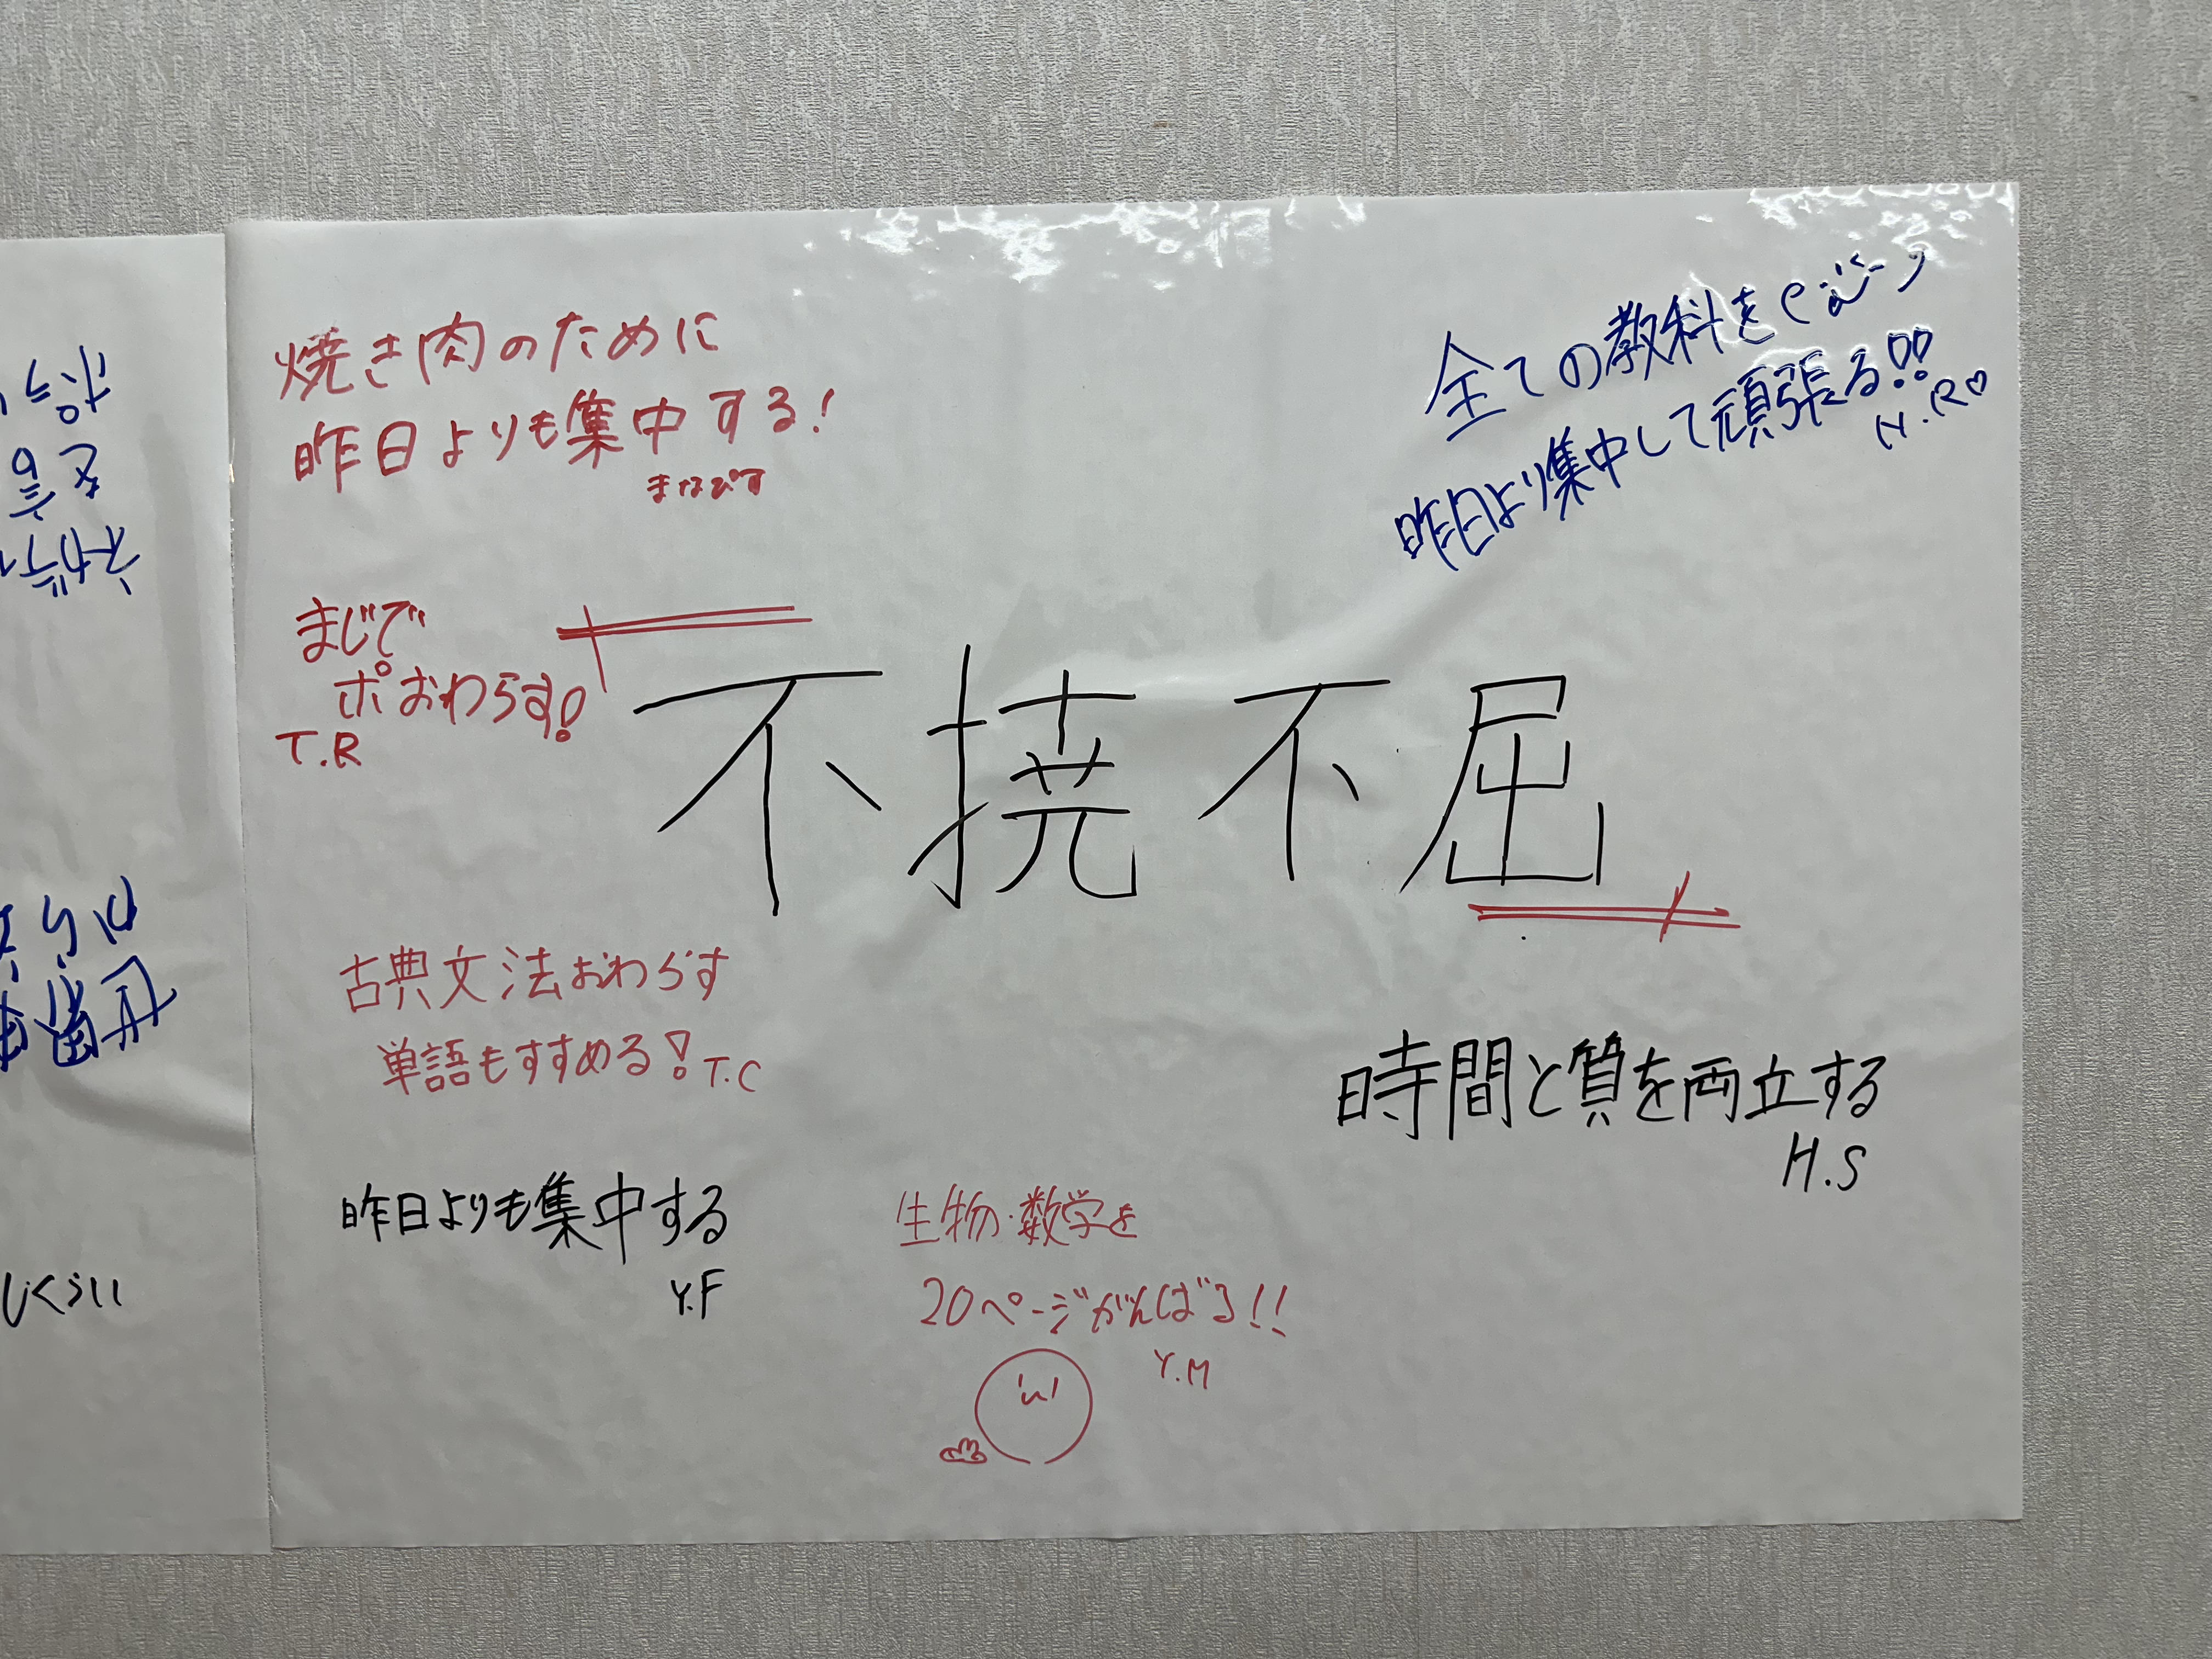 焼き肉のために
昨日よりも集中する!
まなぴす
全ての教科を
昨日より集中して頑張る!!
Y.R♡
まじで
ポおわらす!
T.R
不撓不屈
古典文法おわらす
単語もすすめる!
T.C
時間と質を両立する
H.S
昨日よりも集中する
Y.F
生物・数学を
20ページがんばる!!
Y.M
じくらい